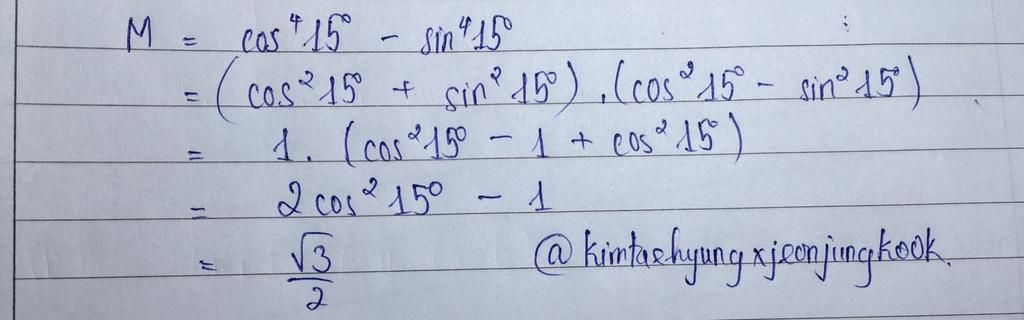 M = cos⁴15° - sin⁴15°
= (cos²15° + sin²15°).(cos²15° - sin²15°)
= 1. (cos²15° - 1 + cos²15°)
= 2cos²15° - 1
= √3/2 @kimtaehyungxjeonjungkook.